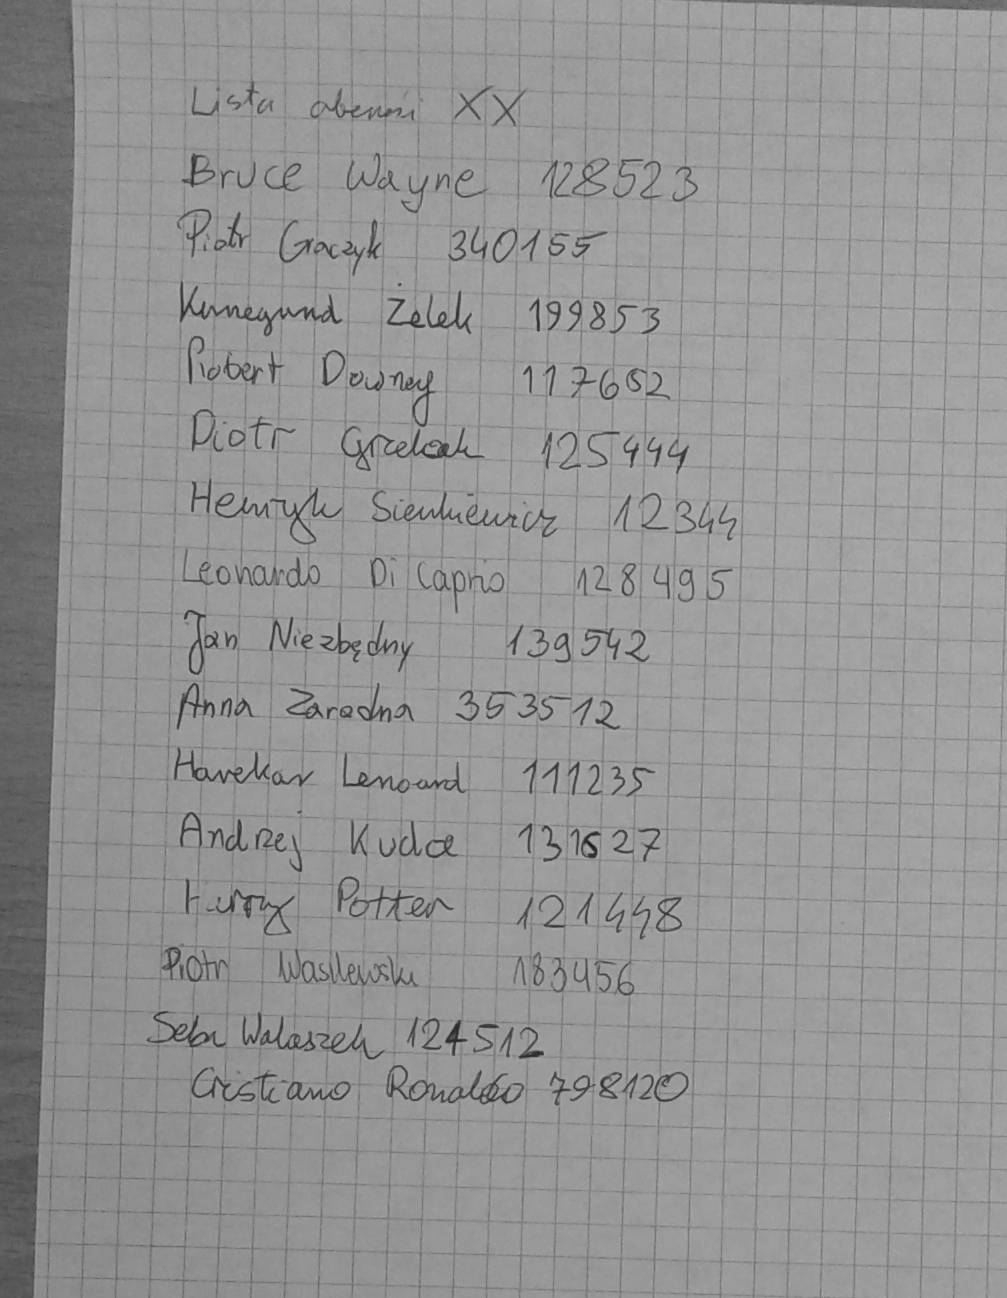 Lista obecni XX
Bruce Wayne 128523
Piotr Graczyk 340155
Kunegund Żelek 199853
Robert Downey 117652
Piotr Grzelak 125444
Henryk Sienkiewicz 12344
Leonardo Di Caprio 128495
Jan Niezbędny 139542
Anna Zaradna 353512
Havekar Lenoard 111235
Andrzej Kudła 131627
Harry Potter 121448
Piotr Wasilewski 183456
Seba Walaszek 124512
Cristiano Ronaldo 798120